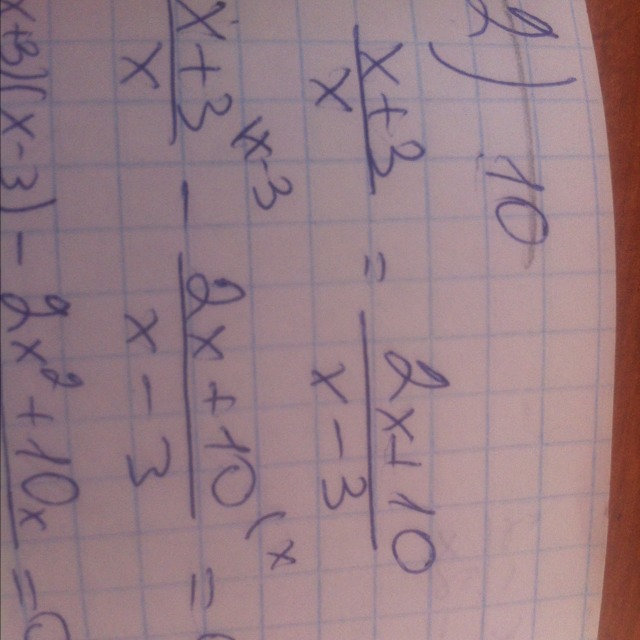 2) 10
x+3/x = 2x+10/x-3
x+3/x x-3 - 2x+10/x-3 (x =
x+3)(x-3) - 2x²+10x =